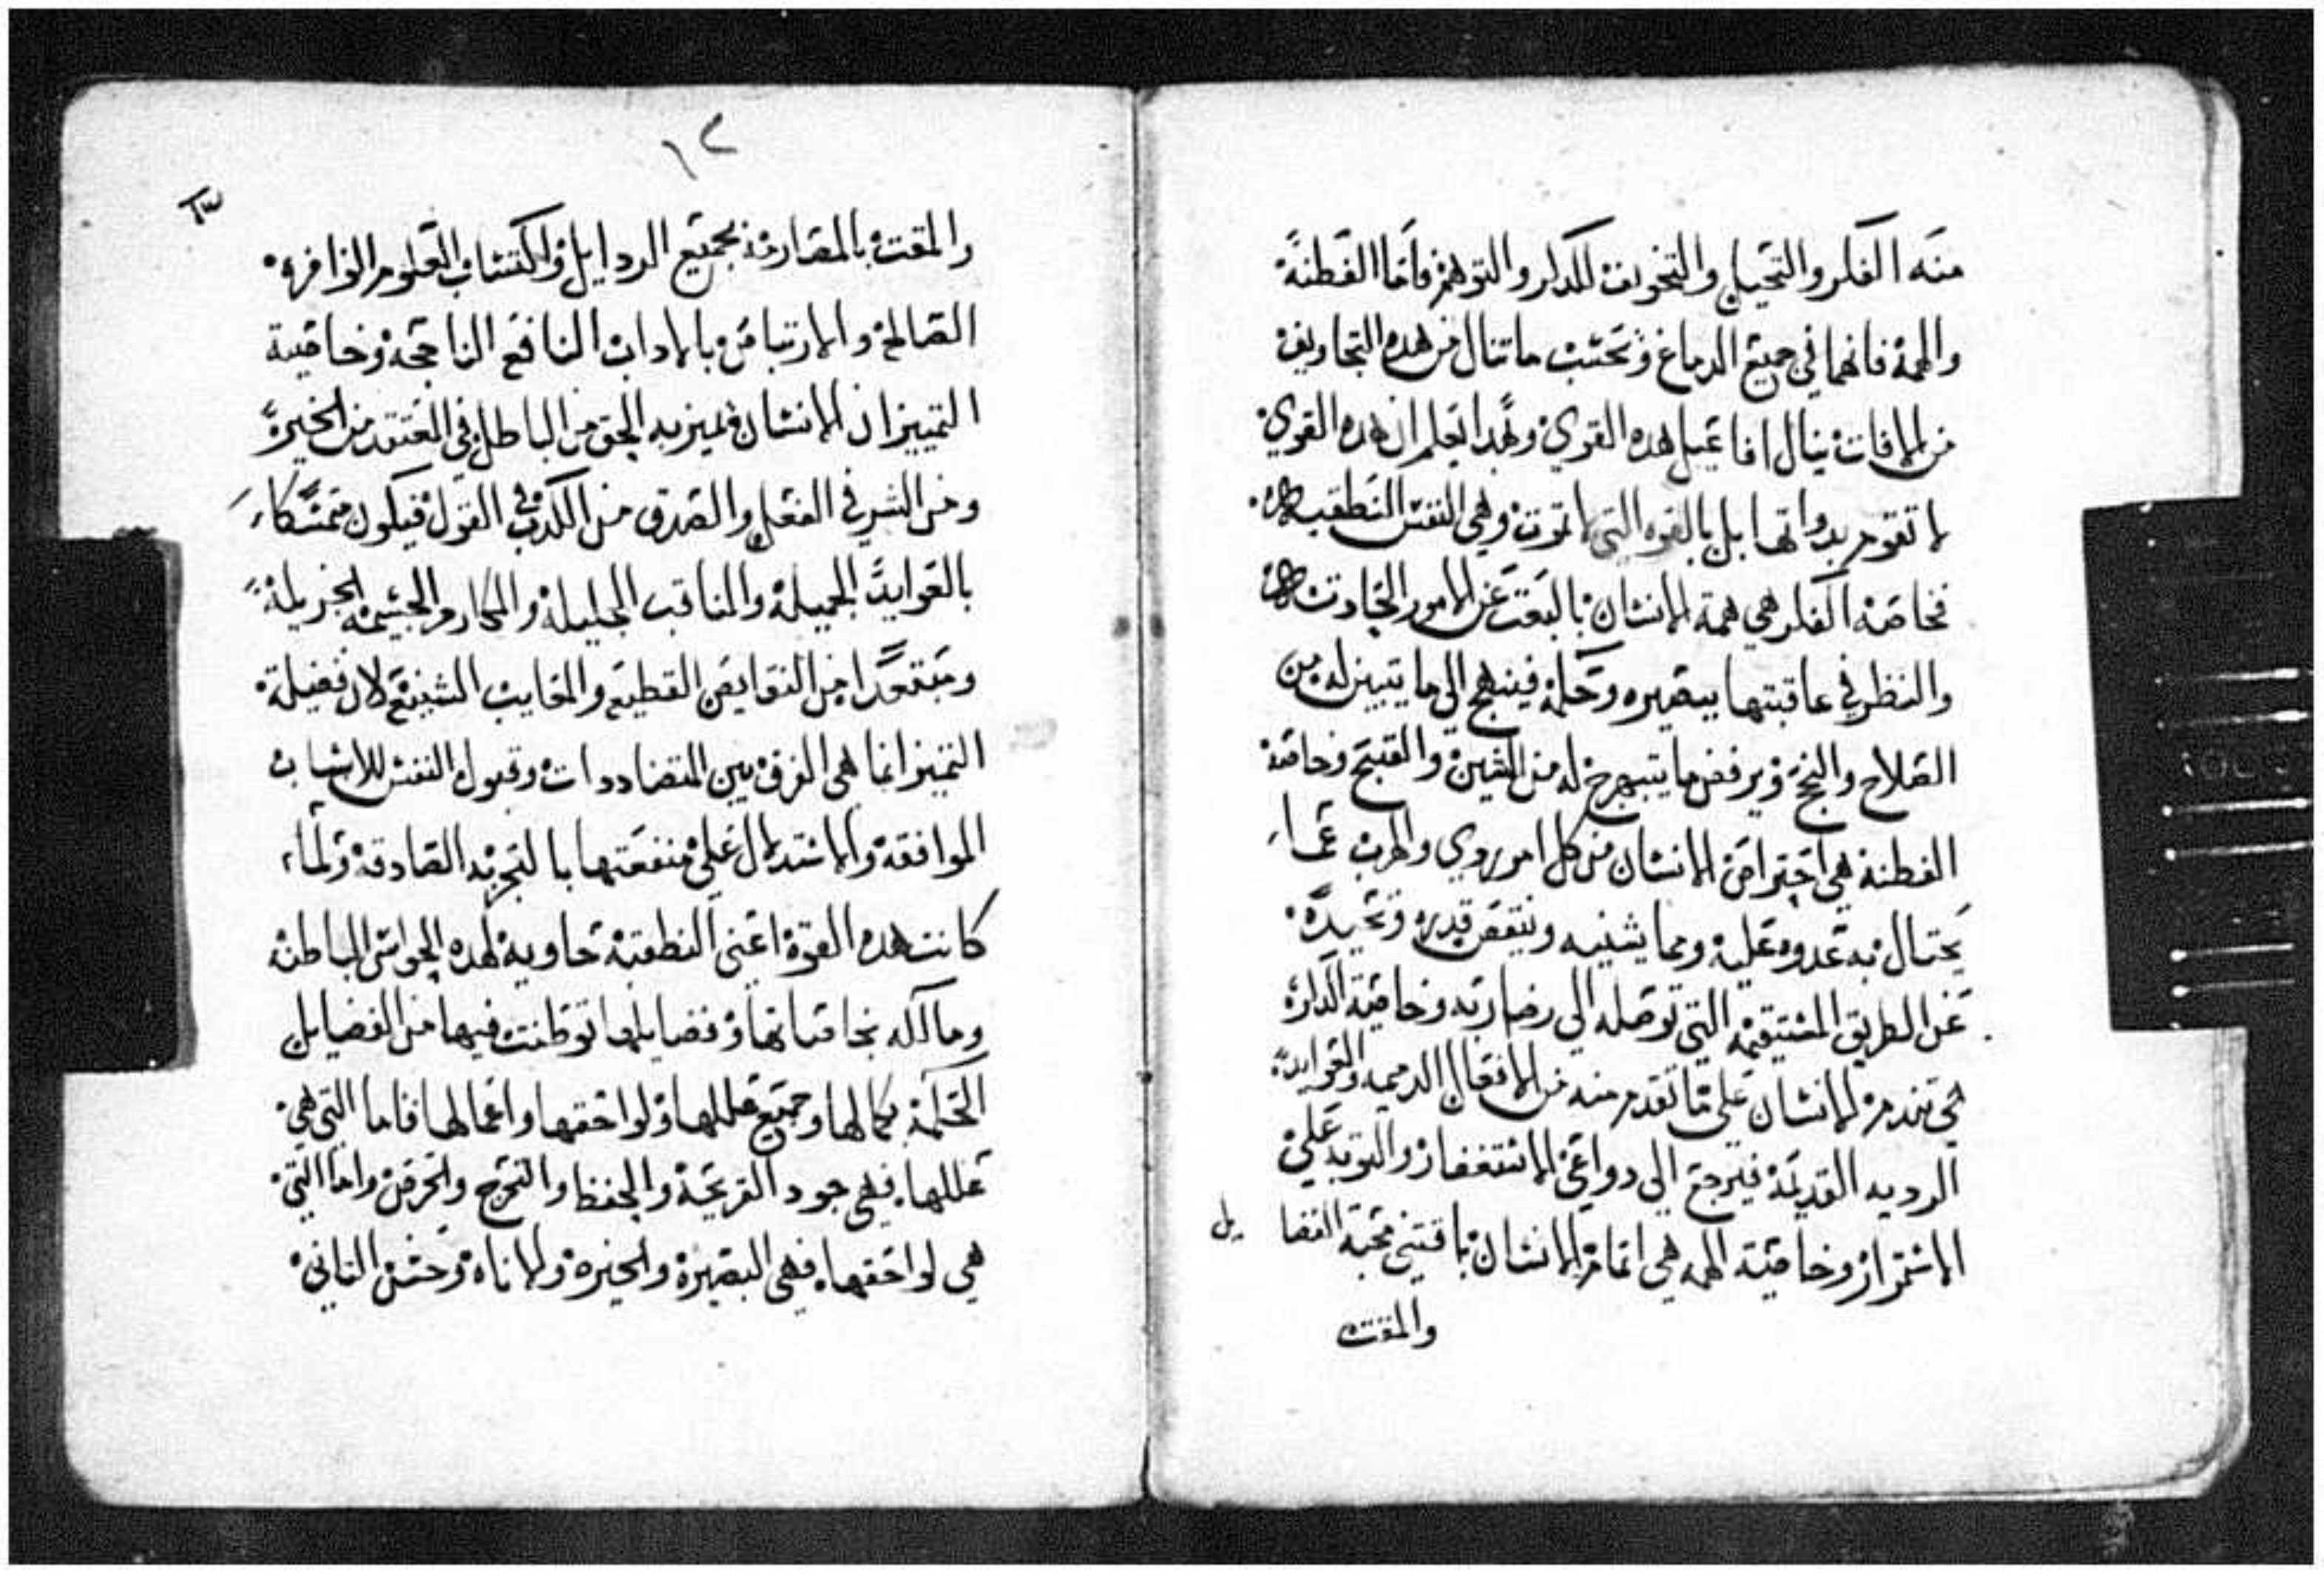 منه الفكر والتخيل والتخويف للدكر والتوهم فاما الفطنة
والهمة فانهما في جميع الدماغ وبحسب ما تنال من هده التجاويف
من الافات ينال افاعيل هده القوي وبهدا يعلم ان هده القوي
لا تقوم بدواتها بل بالقوه التي لا تموت وهي النفس النطقيه
فخاصة الفكر هي همة الانسان بالبحت عن الامور الحادته
والنظر في عاقبتها ببصيره وحكمة فينهج الي ما يتبين له من
الصلاح والنجح ويرفض ما يتبهرج له من الشين والقبح وخاصة
الفطنة هي احتراص الانسان من كل امر ردي والهرب عما
يحتال به عدوه عليه ومما يشنيه وينقص قدره وتحيده
عن الطريق المستيقمه التي توصله الي وخاصية الداره
هي تندم الانسان علي ما تقدم منه من الافعال الدميمه والعوايد
الرديه القديمة فيرجع الي دواعي الاستغفار والتوبه علي
الاستمرار وخاصية الهمه هي اتمام الانسان باقتني محبة الفضايل
والمقت
١٢
١٣
والمقت بالمصارمة بجميع الردايل واكتساب العلوم الوافره
الصالحة والارتياض بالادات النافع الناجحة وخاصية
التمييز ان الانسان يميز به الحق من الباطل في المعتقد من الخيرة
ومن الشر في الفعل والصدق من الكدب في القول فيكون متمسكا
بالعوايد الجميلة والمناقب الجليلة والمكارم الجسيمه الجزيلة
ومبتعدا من النقايص القطيع والمعايب الشنيع لان فضيلة
التميز انما هي الفرق بين المتضاددات وقبول النفس للاسباب
الموافقة والاستدلال علي منفعتها بالتجربه الصادقة ولما
كانت هده القوة اعني النطقية حاوية لهده الحواس الباطنه
وما آله بخاصياتها وفضايلها توطنت فيها من الفضايل
الحكمة بكمالها وجميع عللها ولواحقها واعمالها فاما التي هي
عللها فهي جود القريحة والحفظ والتحرج والحرص واما التي
هي لواحقها فهي البصيرة والخيره والاناه وحسن التاني